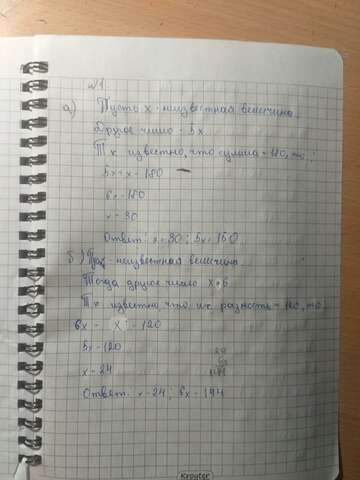 №1.
а) Пусть х - неизвестная величина.
Другое число - 5х
Т.к известно, что сумма - 180, то:
5х+х-180
6х-180
х-30
Ответ: х-30; 5х-150
б) - неизвестная величина.
Тогда другое число х·6
Т.к известно, что их разность - 120, то:
6х - х - 120
5х-120
х-24
Ответ. х-24; 6х-144
Kroyter